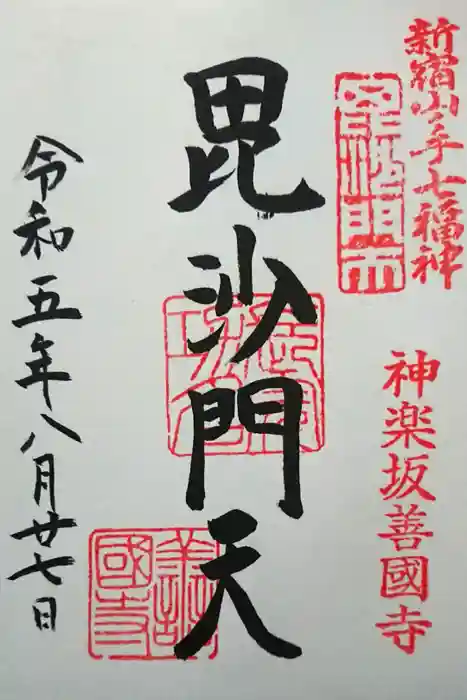 新宿山之手七福神
神楽坂善國寺
毘沙門天
令和五年八月廿七日
善國寺